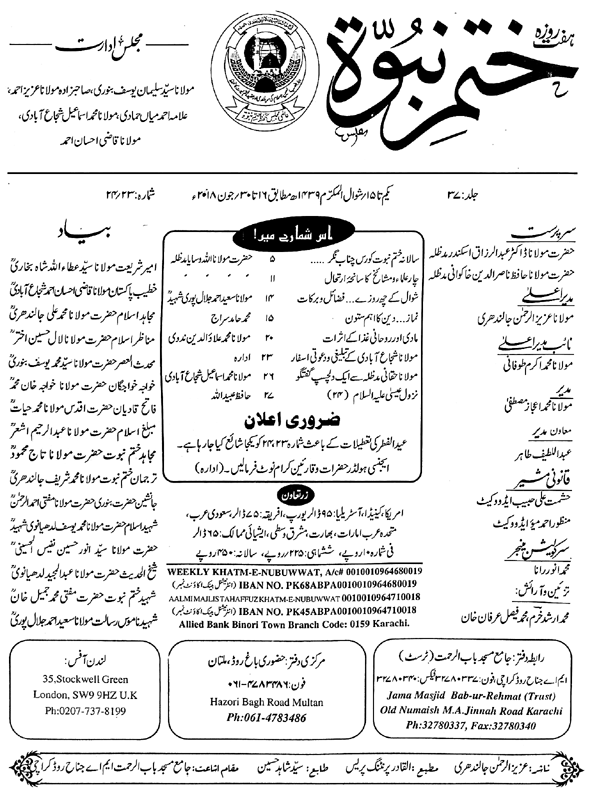 ہفت روزہ
ختم نبوۃ
مجلس ادارت
مولانا سید سلیمان یوسف بنوری، صاحبزادہ مولانا عزیز احمد،
علامہ احمد میاں حمادی، مولانا محمد اسماعیل شجاع آبادی،
مولانا قاضی احسان احمد
جلد: ۳۷
یکم تا ۱۵/شوال المکرم ۱۴۳۹ھ مطابق ۱۶ تا ۳۰/جون ۲۰۱۸ء
شمارہ: ۲۴/۲۳
سرپرست
حضرت مولانا ڈاکٹر عبدالرزاق اسکندر مدظلہ
حضرت مولانا حافظ ناصر الدین خاکوانی مدظلہ
مدیر اعلیٰ
مولانا عزیز الرحمٰن جالندھری
نائب مدیر اعلیٰ
مولانا محمد اکرم طوفانی
مدیر
مولانا محمد اعجاز مصطفیٰ
معاون مدیر
عبداللطیف طاہر
قانونی مشیر
حشمت علی حبیب ایڈووکیٹ
منظور احمد میؤ ایڈووکیٹ
سرکولیشن منیجر
محمد انور رانا
تزئین و آرائش:
محمد ارشد خرم، محمد فیصل عرفان خان
اس شمارے میں!
سالانہ ختم نبوت کورس چناب نگر..... ۵ حضرت مولانا اللہ وسایا مدظلہ
چار علماء و مشائخ کا سانحۂ ارتحال ۱۱
شوال کے چھ روزے... فضائل و برکات ۱۴ مولانا سعید احمد جلال پوری شہیدؒ
نماز... دین کا اہم ستون ۱۵ محمد حامد سراج
مادی اور روحانی غذا کے اثرات ۲۰ مولانا محمد علاؤالدین ندوی
مولانا شجاع آبادی کے تبلیغی و دعوتی اسفار ۲۳ ادارہ
مولانا حقانی مدظلہ سے ایک دلچسپ گفتگو ۲۶ مولانا محمد اسماعیل شجاع آبادی
نزول عیسیٰ علیہ السلام (۲۴) ۲۷ حافظ عبیداللہ
ضروری اعلان
عید الفطر کی تعطیلات کے باعث شمارہ ۲۴،۲۳ کو یکجا شائع کیا جارہا ہے۔
ایجنسی ہولڈر حضرات و قارئین کرام نوٹ فرمالیں۔ (ادارہ)
زرتعاون
امریکا، کینیڈا، آسٹریلیا: ۹۵ ڈالر یورپ، افریقہ: ۷۵ ڈالر، سعودی عرب،
متحدہ عرب امارات، بھارت، مشرق وسطیٰ، ایشیائی ممالک: ۶۵ ڈالر
فی شمارہ ۱۰ روپے، ششماہی: ۲۲۵ روپے، سالانہ: ۴۵۰ روپے
WEEKLY KHATM-E-NUBUWWAT, A/c# 0010010964680019
IBAN NO. PK68ABPA0010010964680019 (انٹرنیشنل بینک اکاؤنٹ نمبر)
AALMI MAJLIS TAHAFFUZ KHATM-E-NUBUWWAT 0010010964710018
IBAN NO. PK45ABPA0010010964710018 (انٹرنیشنل بینک اکاؤنٹ نمبر)
Allied Bank Binori Town Branch Code: 0159 Karachi.
بیاد
امیر شریعت مولانا سید عطاء اللہ شاہ بخاریؒ
خطیب پاکستان مولانا قاضی احسان احمد شجاع آبادیؒ
مجاہد اسلام حضرت مولانا محمد علی جالندھریؒ
مناظر اسلام حضرت مولانا لال حسین اخترؒ
محدث العصر حضرت مولانا سید محمد یوسف بنوریؒ
خواجہ خواجگان حضرت مولانا خواجہ خان محمدؒ
فاتح قادیان حضرت اقدس مولانا محمد حیاتؒ
مبلغ اسلام حضرت مولانا عبدالرحیم اشعرؒ
مجاہد ختم نبوت حضرت مولانا تاج محمودؒ
ترجمان ختم نبوت مولانا محمد شریف جالندھریؒ
جانشین حضرت بنوری حضرت مولانا مفتی احمد الرحمٰنؒ
شہید اسلام حضرت مولانا محمد یوسف لدھیانوی شہیدؒ
حضرت مولانا سید انور حسین نفیس الحسینیؒ
شیخ الحدیث حضرت مولانا عبدالمجید لدھیانویؒ
شہید ختم نبوت حضرت مفتی محمد جمیل خانؒ
شہید ناموس رسالت مولانا سعید احمد جلال پوریؒ
رابطہ دفتر: جامع مسجد باب الرحمت (ٹرسٹ)
ایم اے جناح روڈ کراچی، فون: ۳۲۷۸۰۳۳۷ فیکس: ۳۲۷۸۰۳۴۰
Jama Masjid Bab-ur-Rehmat (Trust)
Old Numaish M.A.Jinnah Road Karachi
Ph:32780337, Fax:32780340
مرکزی دفتر: حضوری باغ روڈ، ملتان
فون: ۰۶۱-۴۷۸۳۴۸۶
Hazori Bagh Road Multan
Ph:061-4783486
لندن آفس:
35,Stockwell Green
London, SW9 9HZ U.K
Ph:0207-737-8199
ناشر: عزیز الرحمٰن جالندھری مطبع: القادر پرنٹنگ پریس طابع: سید شاہد حسین مقام اشاعت: جامع مسجد باب الرحمت ایم اے جناح روڈ کراچی